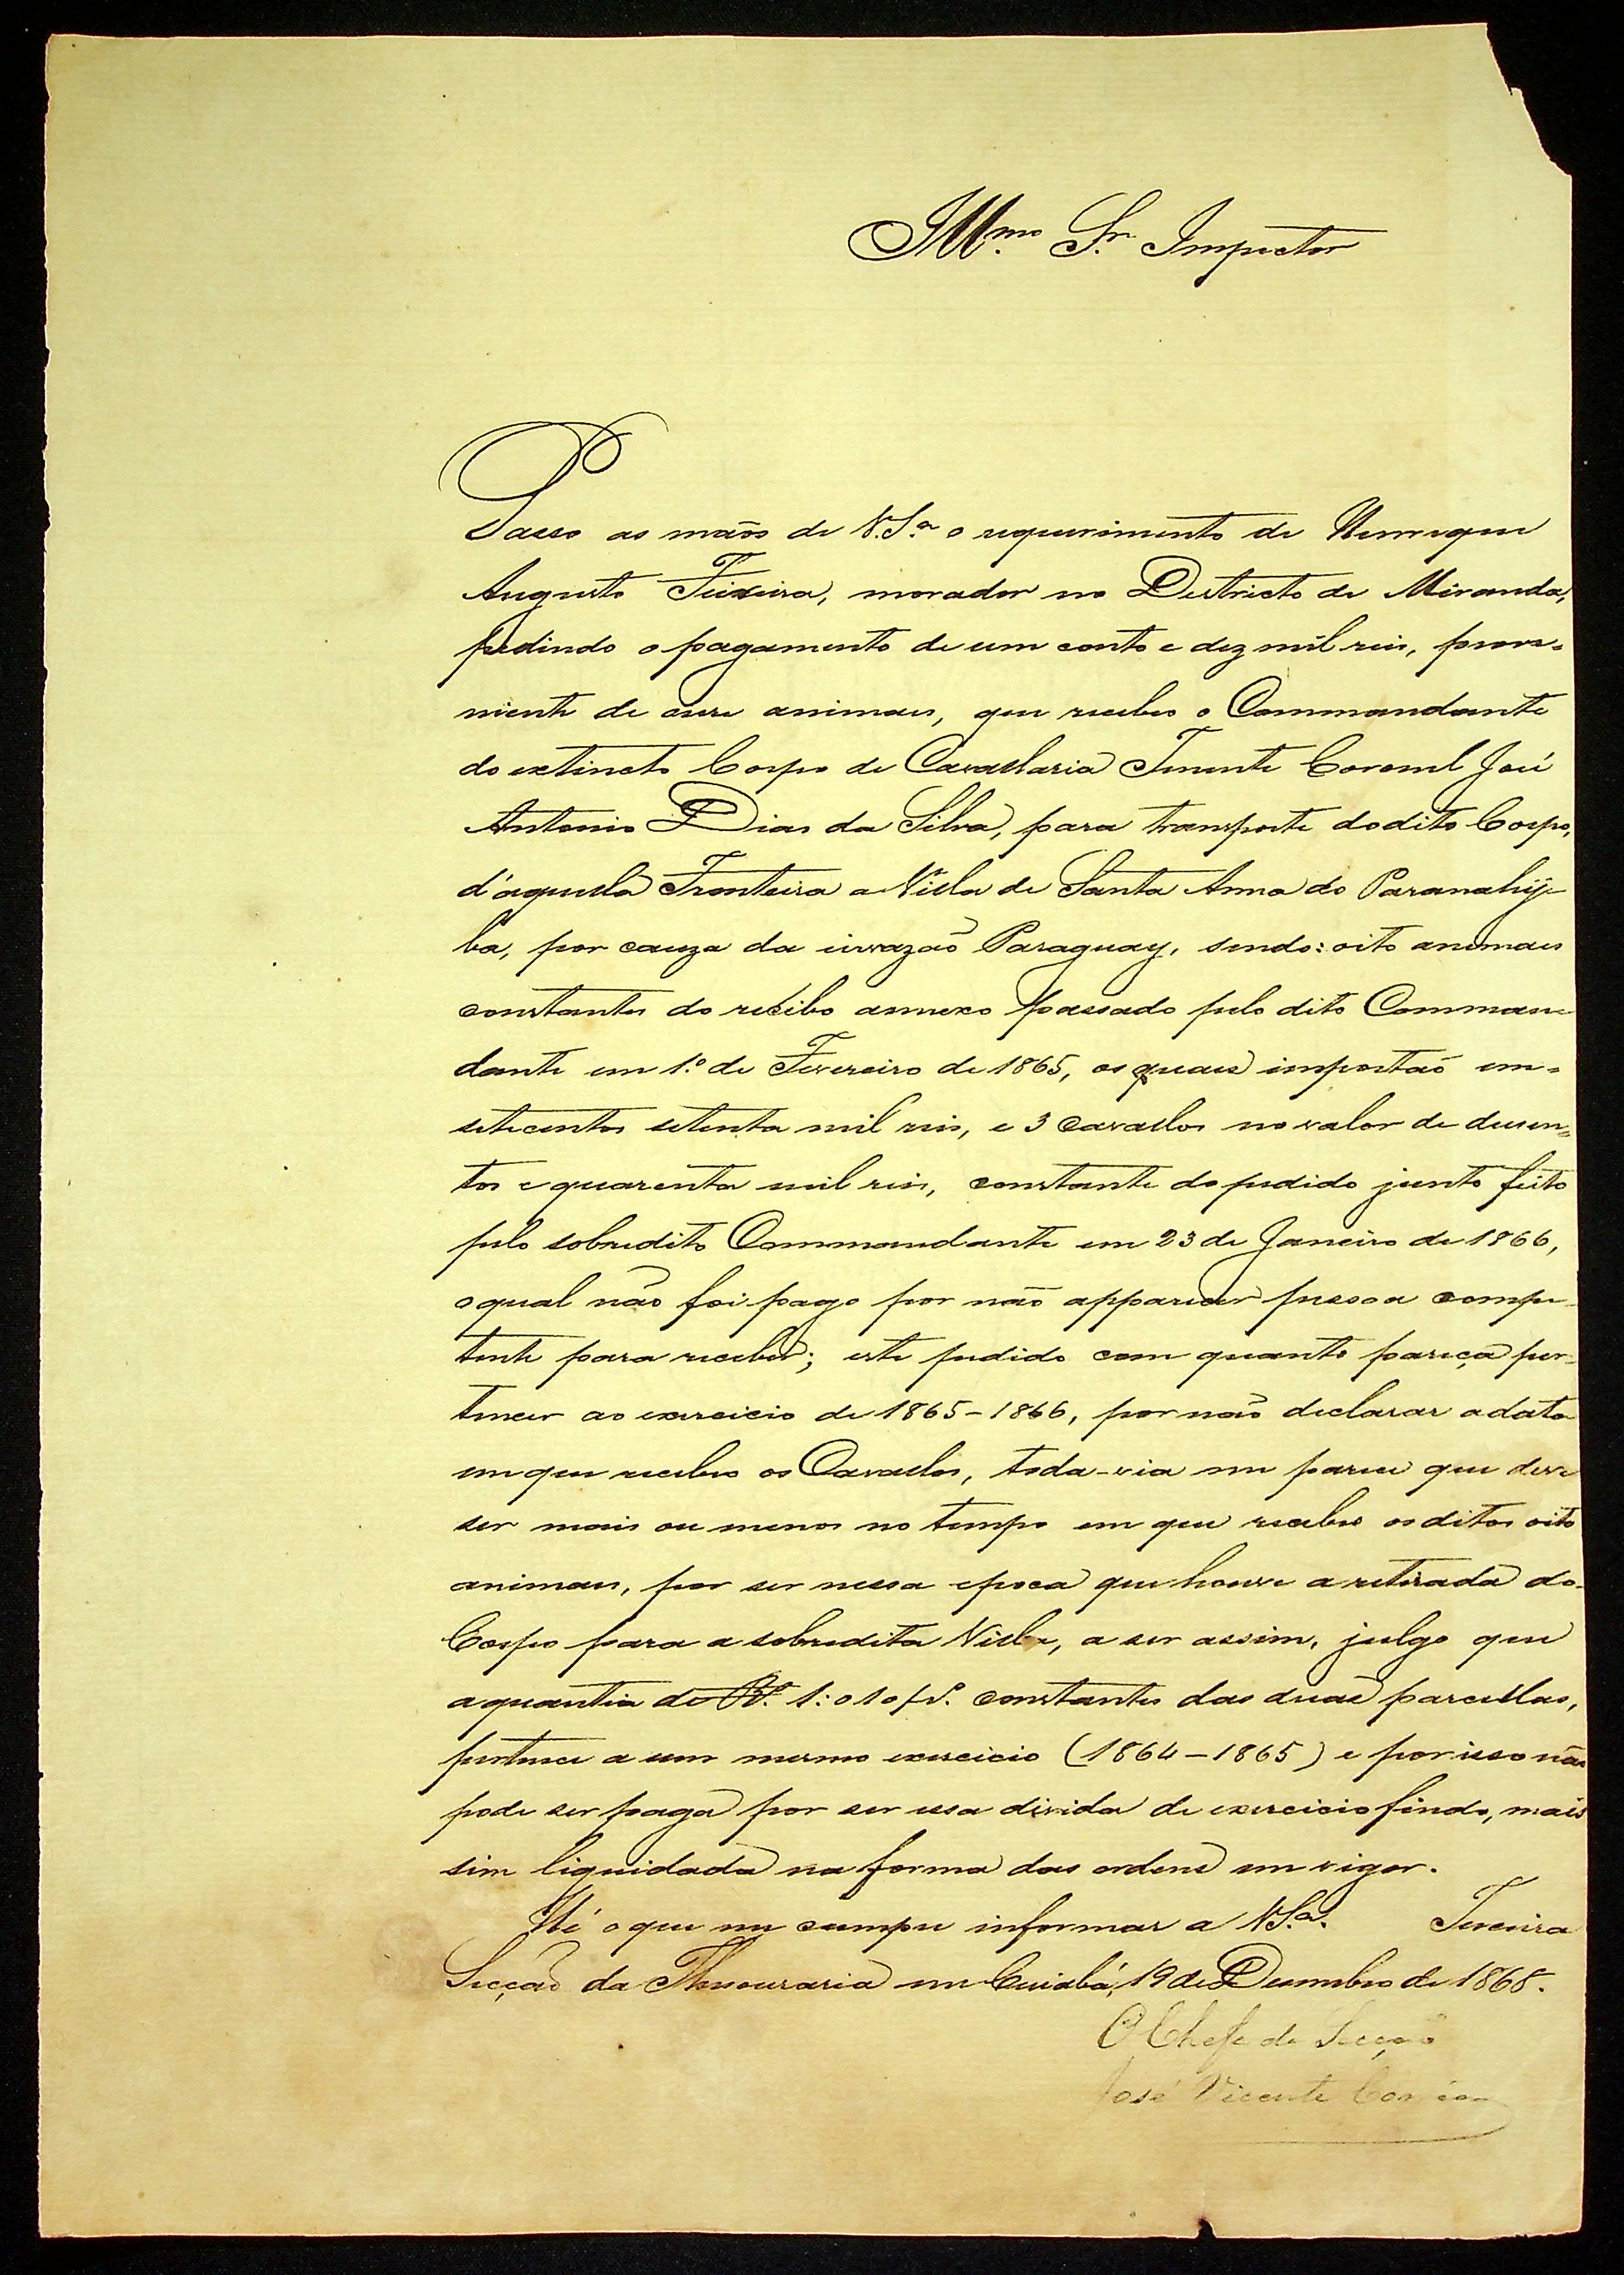 Illmo. Sr. Inspector
Passo as mãos de V.Sa. o requerimento de Henrique
Augusto Teixeira, morador no Destricto de Miranda,
pedindo o pagamento de um conto e dez mil reis, prove-
niente de onze animaes, que recebeo o Commandante
do extincto Corpo de Cavallaria Tenente Coronel José
Antonio Dias da Silva, para transporte do dito Corpo,
d'aquella Fronteira a Villa de Santa Anna do Paranahy-
ba, por cauza da invazaõ Paraguay, sendo: oito animaes
constantes do recibo annexo passado pelo dito Comman-
dante em 1.º de Fevereiro de 1865, os quaes importaõ em-
setecentos setenta mil reis, e 3 cavallos no valor de duzen=
tos e quarenta mil reis, constante do pedido junto feito
pelo sobredito Commandante em 23 de Janeiro de 1866,
o qual não foi pago por não apparecer pessoa compe-
tente para receber; este pedido com quanto pareça per-
tencer ao exercicio de 1865-1866, por não declarar a data
em que recebeo os Cavallos, toda-via me parece que deve
ser mais ou menos no tempo em que recebeo os ditos oito
animaes, por ser nessa epoca que houve a retirada do-
Corpo para a sobredita Villa, a ser assim, julgo que
a quantia de Rs. 1:010$rs. constantes das duas parcellas,
pertence a um mesmo exercicio (1864-1865) e por isso não
pode ser paga por ser essa divida de exercicio findo, mais
sim liquidada na forma das ordens em vigor.
Hé o que me cumpre informar a V.Sa. Terceira
Secção da Thesouraria em Cuiabá, 19 de Dezembro de 1868.
O Chefe de Secção
José Vicente Corrêa